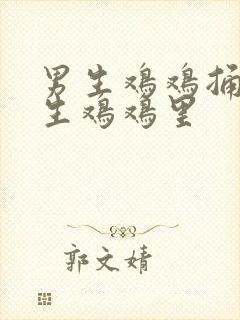 男生鸡鸡捅
生鸡鸡里
郭文婧